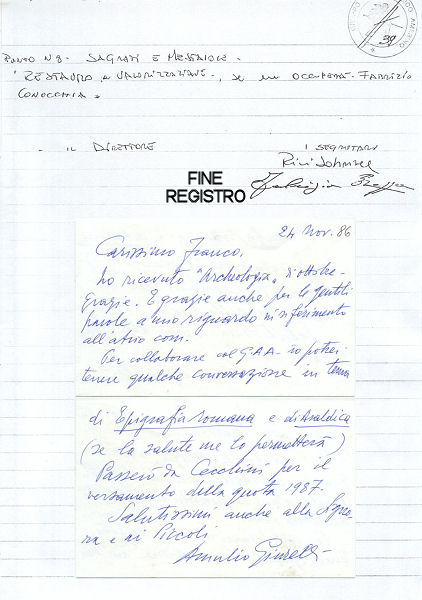 39
PUNTO N8 - SAGRATI E MESSAIOLI -
RESTAURO e VALORIZZAZIONE, SE NE OCCUPERÀ FABRIZIO
CONOCCHIA.
- IL DIRETTORE I SEGRETARI
FINE
REGISTRO
24 Nov. 86
Carissimo Franco,
ho ricevuto "Archeologia" d'ottobre -
Grazie. E grazie anche per le gentili
parole a mio riguardo in riferimento
all'atrio com.
Per collaborare col GAA - io potrei
tenere qualche conversazione in tema
di Epigrafia romana e di Araldica
(se la salute me lo permetterà)
Passerò da Cecchini per il
versamento della quota 1987.
Salutissimi anche alla Signo
ra e ai Piccoli
Amulio